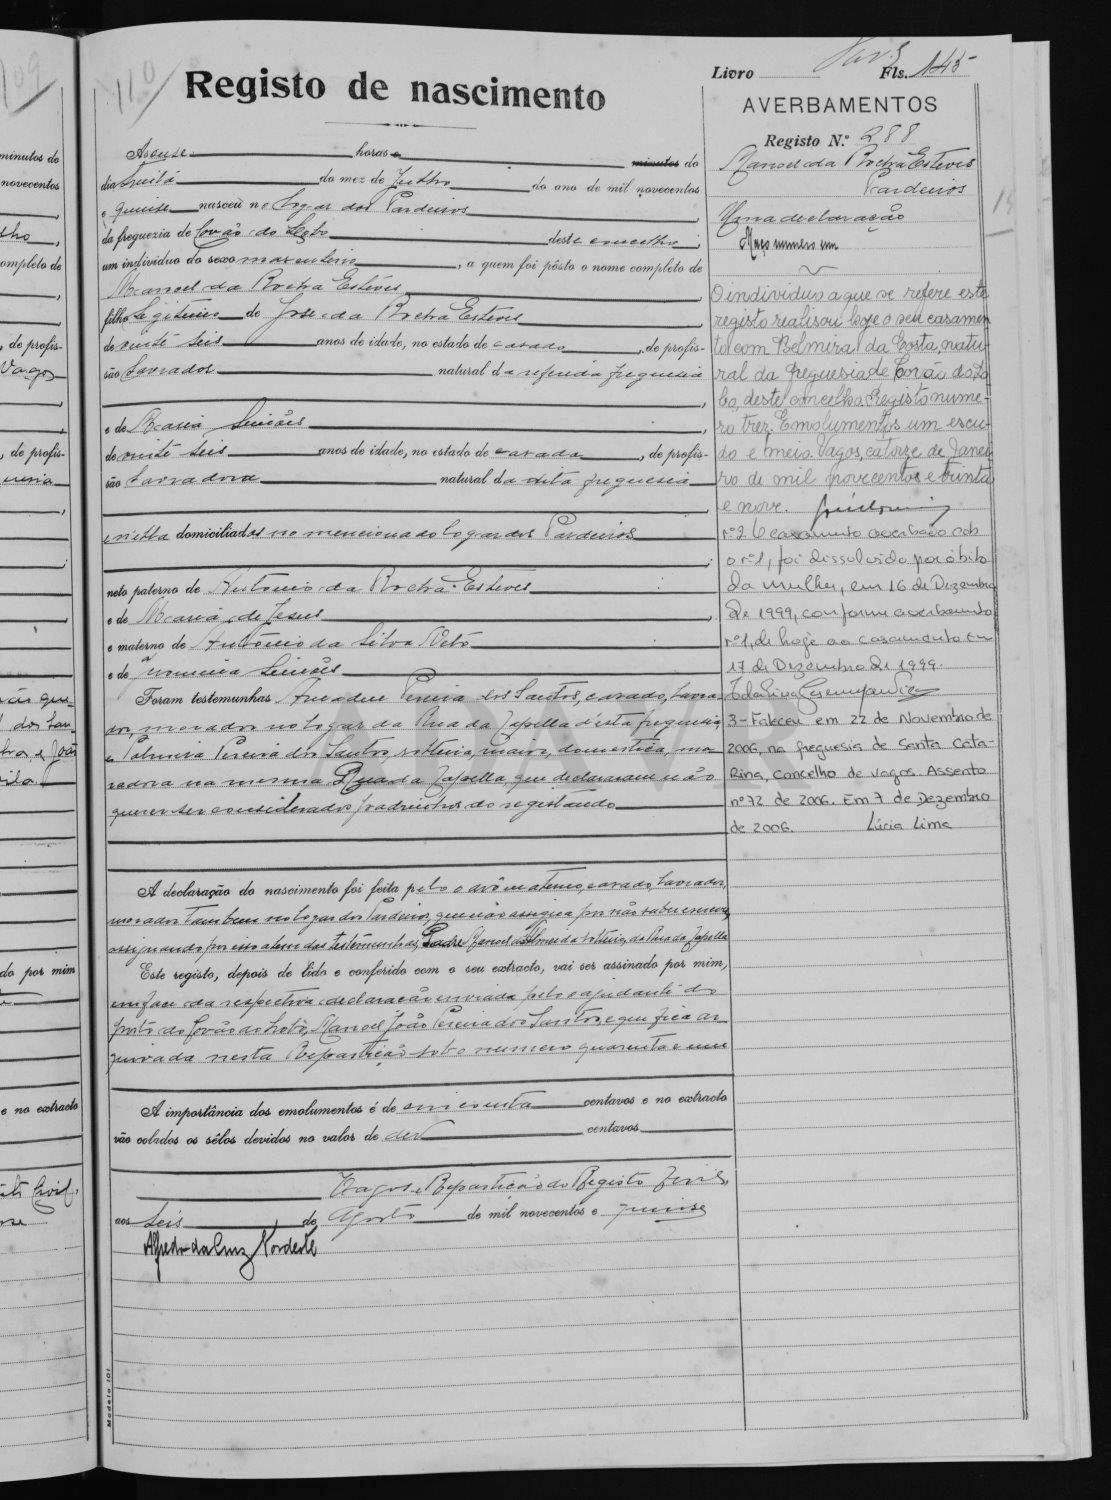 110
Registo de nascimento
Às onze horas e minutos do
dia trinta do mez de Julho do ano de mil novecentos
e quinze nasceu no logar dos Pardeiros
da freguezia de Covão do Lobo deste concelho,
um individuo do sexo masculino, a quem foi pôsto o nome completo de
Manoel da Rocha Estéves
filho legitimo de José da Rocha Esteves,
de vinte seis anos de idade, no estado de casado, de profis-
são Lavrador natural da referida freguesia
e de Maria Simões,
de vinte seis anos de idade, no estado de casada, de profis-
são Lavradora natural da dita freguesia
e nella domiciliados no mencionado logar dos Pardeiros
neto paterno de Antonio da Rocha Esteves
e de Maria de Jesus,
e materno de António da Silva Neto
e de Joaquina Simões
Foram testemunhas Amadeu Pereira dos Santos, casado, lavra-
dor, morador no logar da Rua da Capella d'esta freguesia,
e Palmira Pereira dos Santos, solteira, maior, domestica, mo-
radora na mesma Rua da Capella, que declararam não
querer ser considerados padrinhos do registando
A declaração do nascimento foi feita pelo o avô materno, casado, lavrador,
morador tambem no logar dos Pardeiros, que não assigna por não saber escrever,
assignando por isso alem das testemunhas, Padre Manoel d'Almeida solteiro, da Rua da Capella
Este registo, depois de lido e conferido com o seu extracto, vai ser assinado por mim,
em face da respectiva declaração enviada pelo o ajudante do
posto do Covão do Lobo, Manoel João Pereira dos Santos, e que fica ar-
quivada nesta Repartição sob o numero quarenta e um
A importância dos emolumentos é de cincoenta centavos e no extracto
vão colados os sêlos devidos no valor de dez centavos
Vagos e Repartição do Registo Civil,
aos seis de Agosto de mil novecentos e quinze
Alfredo da Cruz Nordeste
Modelo 101
Livro Fls. 145
AVERBAMENTOS
Registo N.º 288
Manoel da Rocha Esteves
Pardeiros
Uma declaração
Maço numero um
O individuo a que se refere este
registo realisou hoje o seu casamen
to com Belmira da Costa, natu-
ral da freguesia de Covão do Lo-
bo, deste concelho. Registo nume-
ro trez. Emolumentos um escu-
do e meio. Vagos, catorze de Janei-
ro de mil novecentos e trinta
e nove.
nº 2 O casamento averbado sob
o nº 1, foi dissolvido por óbito
da mulher, em 16 de Dezembro
de 1999, conforme averbamento
nº 1, de hoje ao casamento em
17 de Dezembro de 1999.
3 - Faleceu em 22 de Novembro de
2006, na freguesia de Santa Cata-
Rina, Concelho de Vagos. Assento
nº 72 de 2006. Em 7 de Dezembro
de 2006. Lúcia Lima
109
minutos do
novecentos
ompleto de
, de profis-
Vagos
, de profis-
do por mim
e no extracto